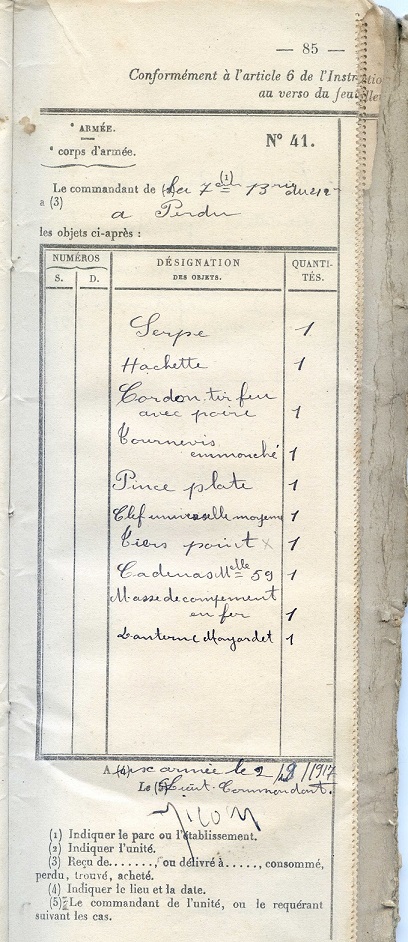 — 85 —
Conformément à l'article 6 de l'Instructio
au verso du feuillet
e ARMÉE.
e corps d'armée.
N° 41.
(1)
Le commandant de la 7eme Brie du 212e
a (3) a Perdu
les objets ci-après :
NUMÉROS DÉSIGNATION QUANTI-
S. D. DES OBJETS. TÉS.
Serpe 1
Hachette 1
Cordon tir feu
avec poire 1
Tournevis
emmonché 1
Pince plate 1
Clef universelle moyenne 1
Tiers point x 1
Cadenas Melle 59 1
Masse de compement
en fer 1
Lanterne Mayardet 1
A (4) armée le 2 / /1917
Le (5) Lieut. Commandant.
(1) Indiquer le parc ou l'établissement.
(2) Indiquer l'unité.
(3) Reçu de......., ou délivré à....., consommé,
perdu, trouvé, acheté.
(4) Indiquer le lieu et la date.
(5) Le commandant de l'unité, ou le requérant
suivant les cas.